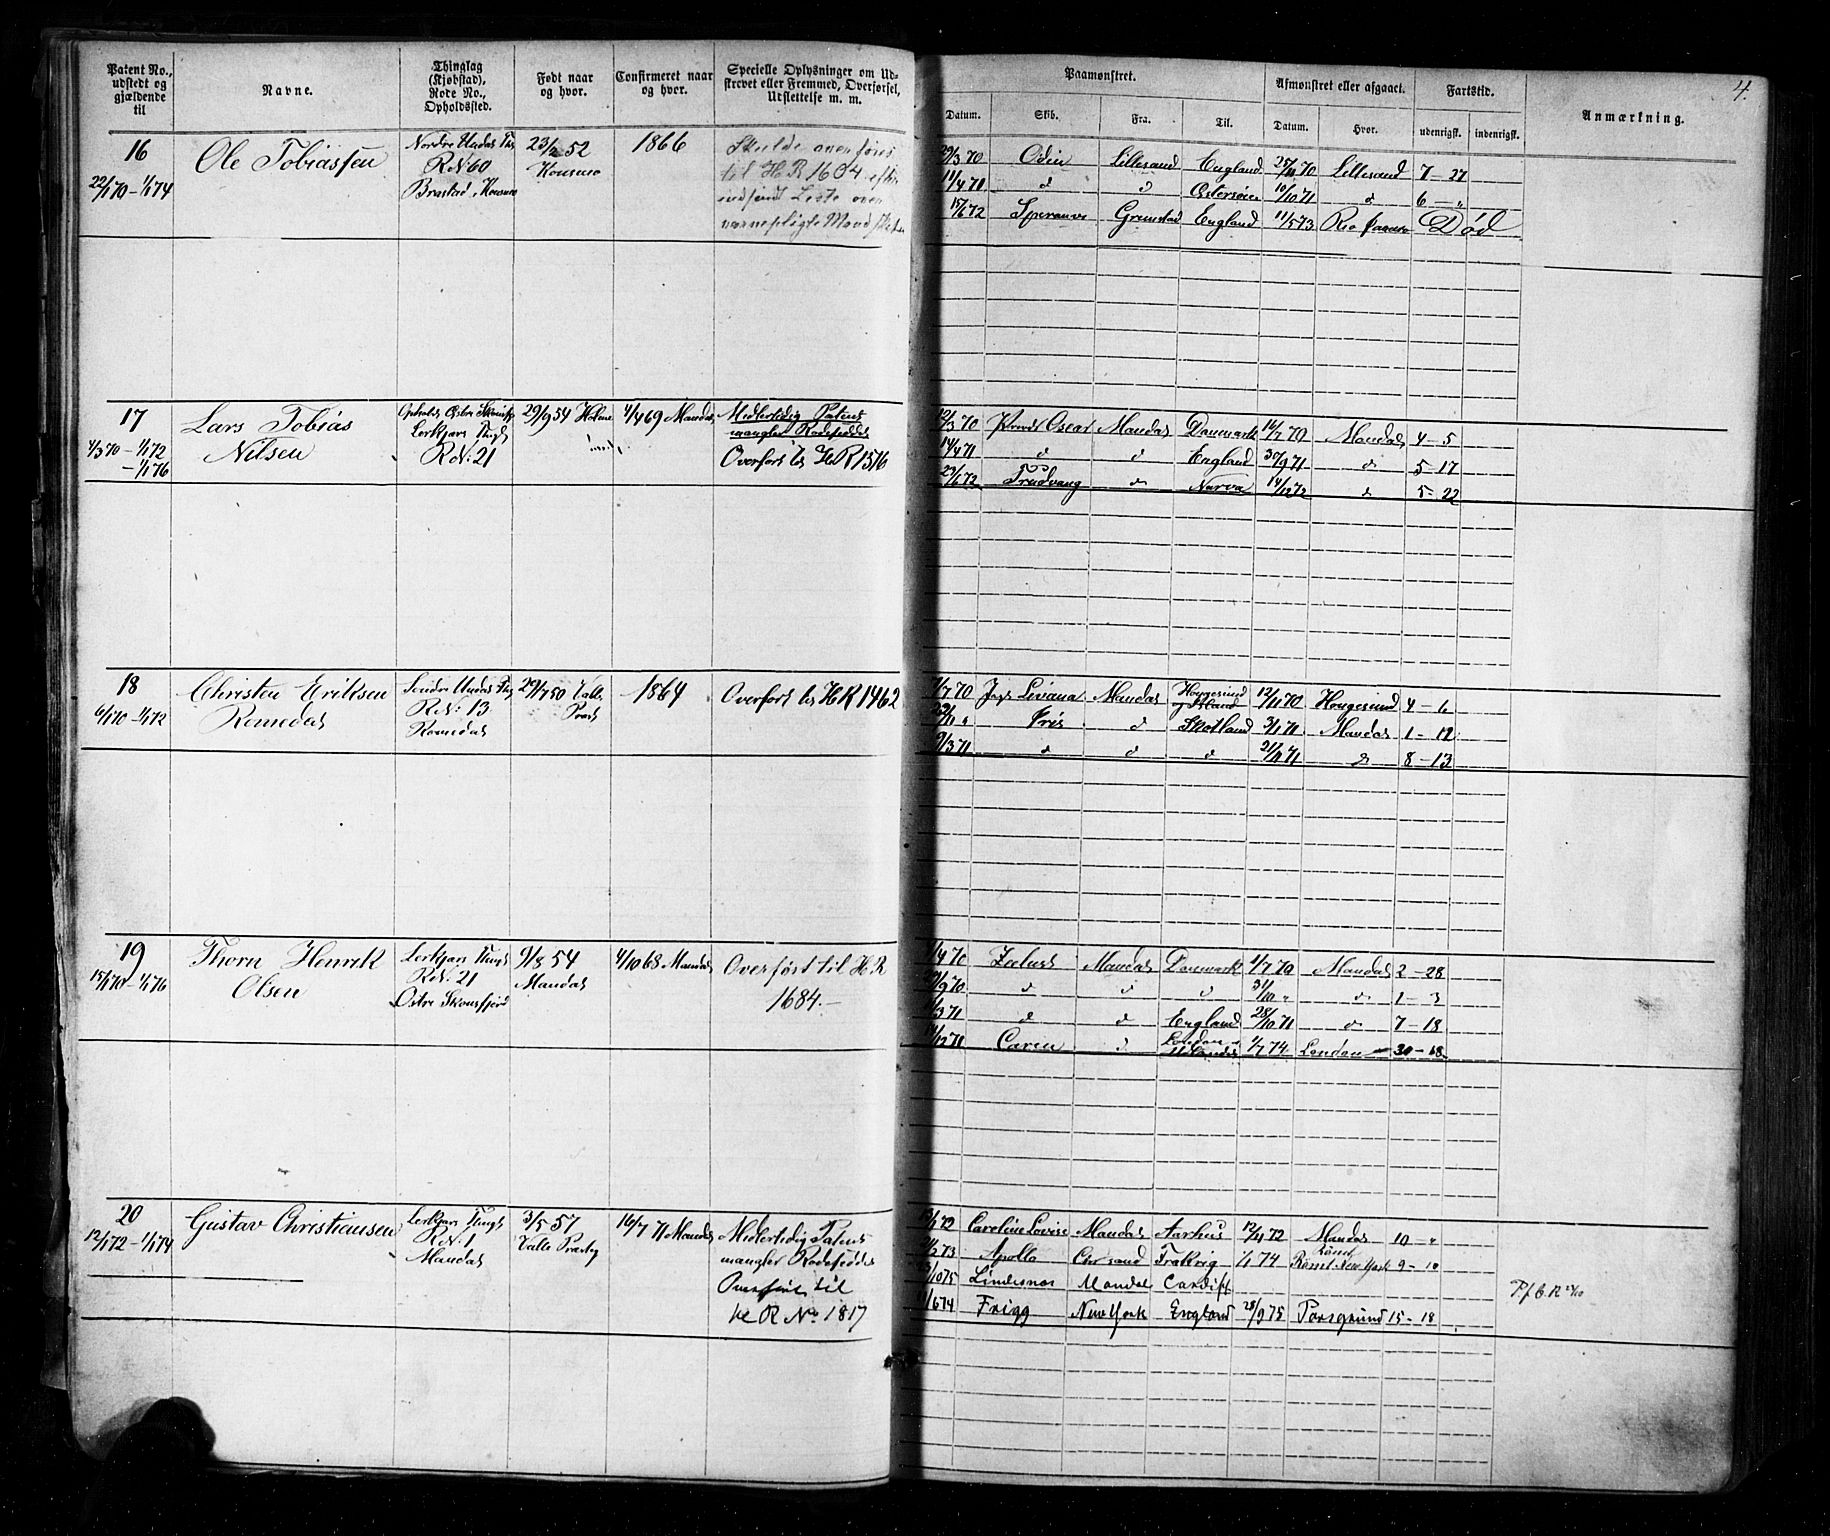 4.
Patent No., udstedt og gjældende til
Navne.
Thinglag (Kjøbstad), Rode No., Opholdssted.
Født naar og hvor.
Confirmeret naar og hvor.
Specielle Oplysninger om Udskrevet eller Fremmed, Overførsel, Udslettelse m. m.
Paamønstret.
Datum.
Skib.
Fra.
Til.
Afmønstret eller afgaaet.
Datum.
Hvor.
Fartstid.
udenrigsk.
indenrigsk.
Anmærkning.
16
22/1 70 – 1/1 74
Ole Tobiassen
Nordre Undal Thg
R.N. 60
Brastad, Konsmo
23/2 52
Konsmo
1866
Skulde overføres
til H R 1604 efter
indsendt Liste over
værnepligte Mand
29/3 70 Odin Lillesand England 27/10 70 Lillesand 7 – 27
11/4 71 d d Østersøen 10/10 71 d 6 – "
15/6 72 Grimstad England 11/5 73 Død
17
4/3 70 – 1/1 72
– 1/1 76
Lars Tobias
Nilsen
Lerkjærs Thgl
R.N. 21
29/9 54 Holme
4/4 69 Mandal
Midlertidig Patent
mangler Rodeseddel
Overført til H R 1576
12/3 70 Oscar Mandal Danmark 16/7 70 Mandal 4 – 5
14/4 71 d d England 30/9 71 d 5 – 17
23/6 72 Trudvang d Narva 14/12 72 d 5 – 22
18
6/1 70 – 1/1 72
Christen Eriksen
Romedal
Søndre Undal Thg
R.N. 13
Romedal
29/7 50 Valle
Præst
1864
Overført til H R 1462
7/7 70 Jagt Liviana Mandal Hougesund
og Island 12/11 70 Hougesund 4 – 6
22/11 " Iris d Skotland 3/1 71 Mandal 1 – 12
9/3 71 d d d 21/11 71 d 8 – 13
19
15/1 70 – 1/1 76
Thorn Henrik
Olsen
Lerkjærs Thgl
R.N. 21
Østre Skonsfjord
9/8 54
Mandal
4/10 68 Mandal
Overført til H R
1684.
1/4 70 Mandal Danmark 1/7 70 Mandal 2 – 28
29/9 70 d d d 31/10 " d 1 – 3
1/3 71 d d England 28/10 71 d 7 – 18
14/12 71 Caren d London 1/7 74 London 30 – 18
20
12/1 72 – 1/1 74
Gustav Christiansen
Lerkjærs Thgl
R.N. 1
Mandal
3/5 57
Valle Præstg
16/7 71 Mandal
Midlertidig Patent
mangler Rodeseddel
Overført til
H R No 1817
Caroline Lovise Mandal Aarhus 12/11 72 Mandal 10 – "
Apollo Chrsand 1/1 74 New York 9 – 10
13/10 75 Lindesnæs Mandal Cardiff
11/6 74 Frigg New York England 28/9 75 Porsgrund 15 – 18